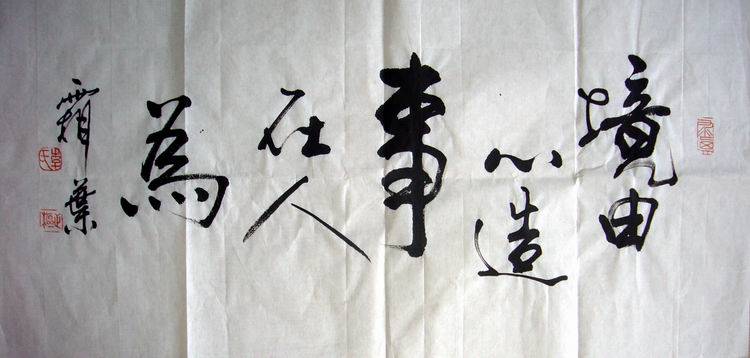 境由
心造
事
在人
為
霜葉